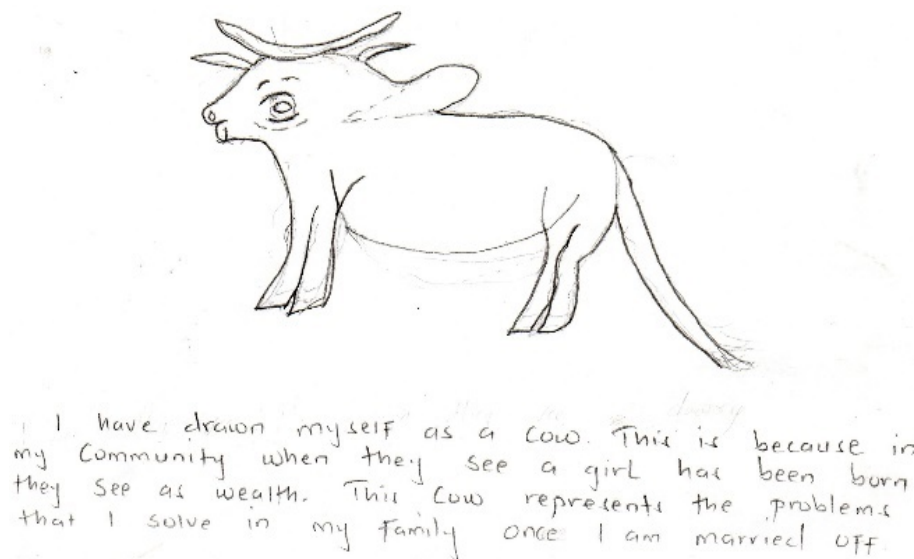 I have drawn myself as a cow. This is because in
my Community when they see a girl has been born
they see as wealth. This Cow represents the problems
that I solve in my Family once I am married off.